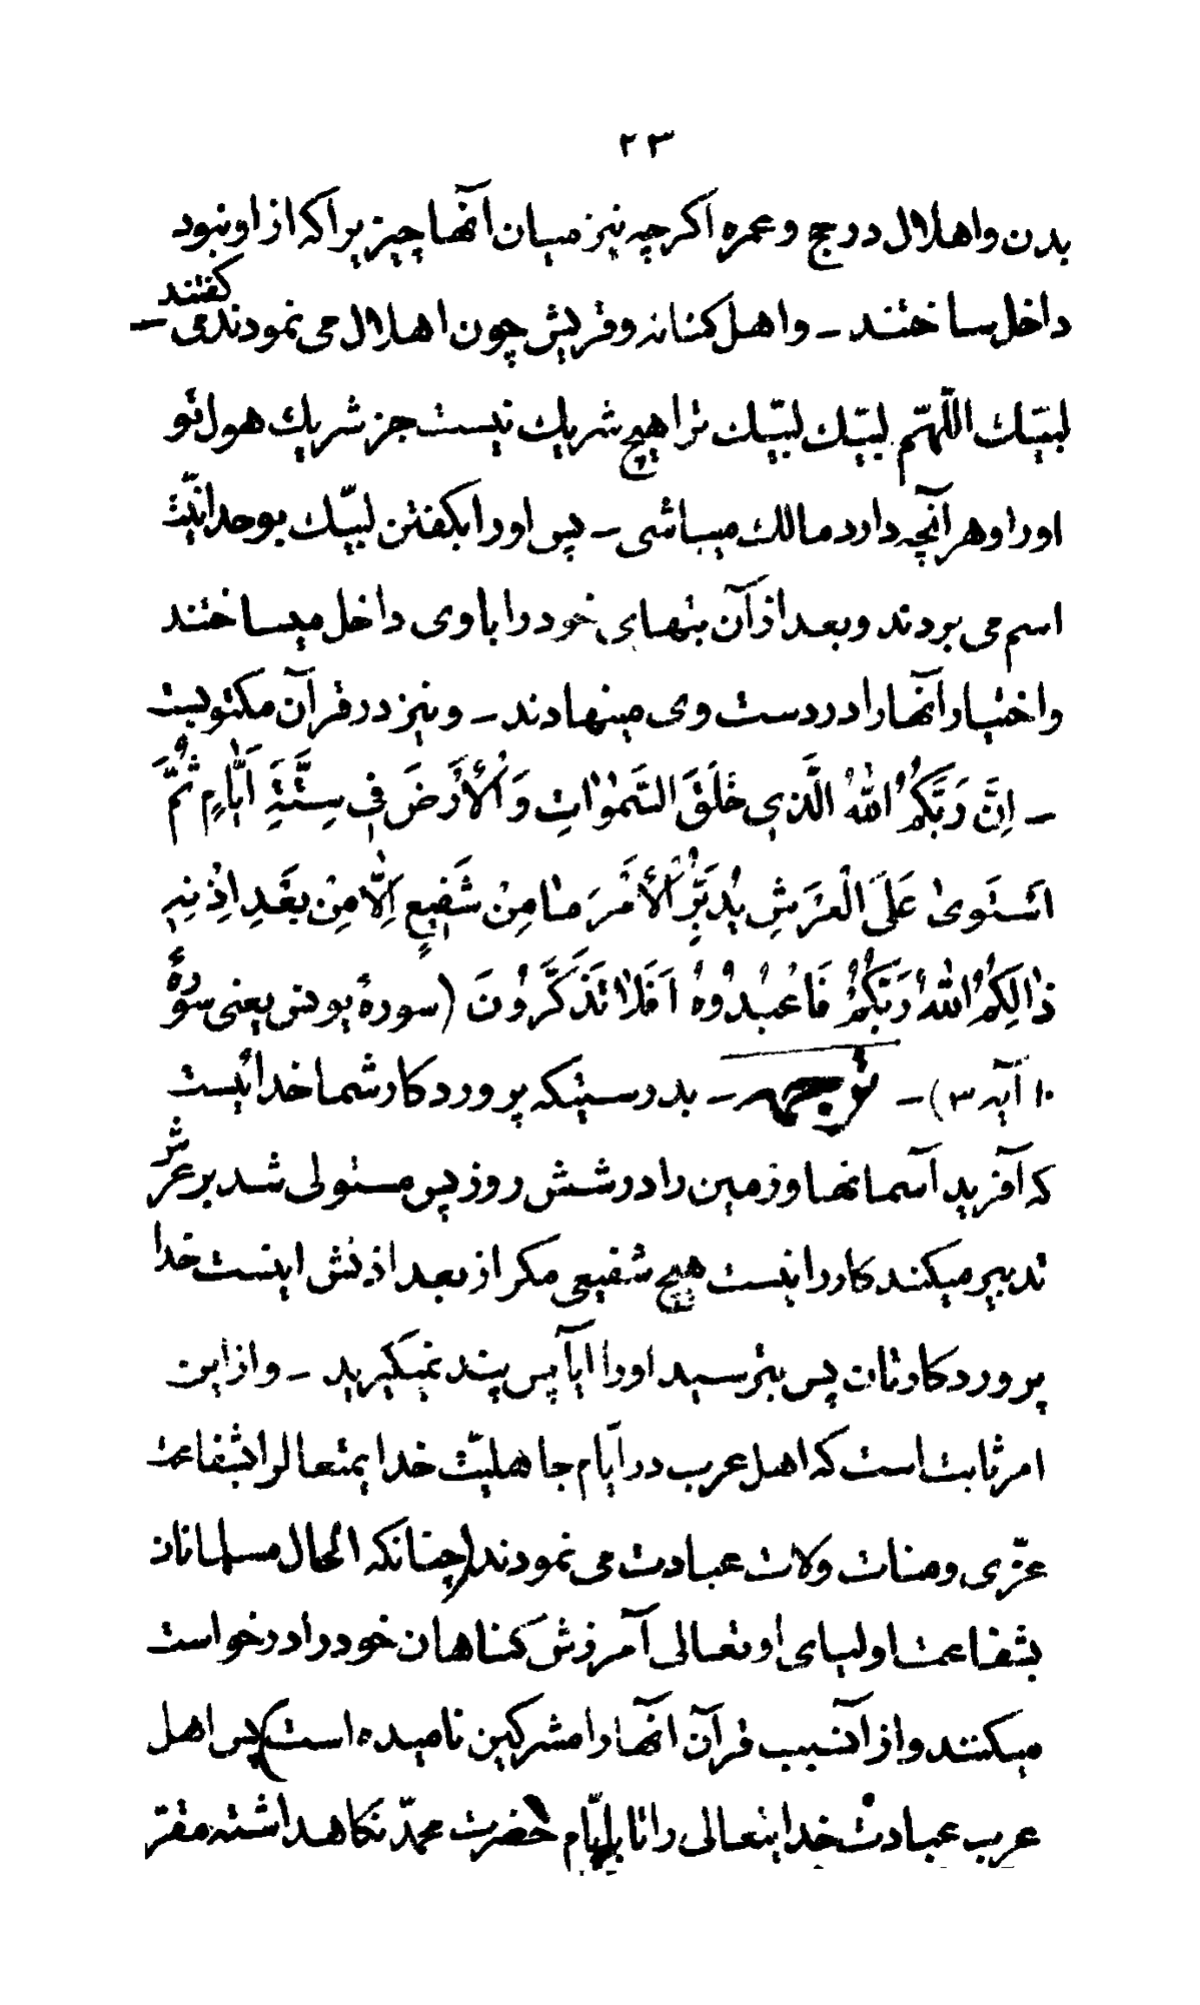 ۲۳
بدن واهلال در حج وعمره اكرچه نيز ميان آنها چيزيرا كه از او نبود
داخل ساختند ــ واهل كنانه وقريش چون اهلال مى نمودند مى كفتند ــ
لبيّك اللّهمّ لبيّك لبيّك ترا هيچ شريك نيست جز شريك هول تو
اورا وهر آنچه دارد مالك ميباشى ــ پس اورا بكفتن لبيّك بوحدانيّت
اسم مى بردند وبعد از آن بتهاى خودرا با وى داخل ميساختند
واختيار آنها را در دست وى مينهادند ــ ونيز در قرآن مكتوبست
ــ اِنَّ رَبَّكُمُ اللهُ الَّذِي خَلَقَ السَّمٰوٰاتِ وَالْأَرْضَ فِي سِتَّةِ اَيّٰامٍ ثُمَّ
اسْتَوىٰ عَلَى الْعَرْشِ يُدَبِّرُ الْأَمْرَ مٰا مِنْ شَفِيعٍ اِلّٰا مِنْ بَعْدِ اِذْنِهِ
ذٰالِكُمُ اللهُ رَبُّكُمْ فَاعْبُدُوهُ اَفَلٰا تَذَكَّرُونَ (سورهٔ يونس يعنى سورهٔ
۱۰ آيه ۳) ــ ترجمه ــ بدرستيكه پروردكار شما خدائيست
كه آفريد آسمانها وزمين را در شش روز پس مستولى شد بر عرش
تدبير ميكند كاررا نيست هيچ شفيعى مكر از بعد اذنش اينست خدا
پروردكارتان پس بترسيد اورا ايا پس پند نميكيريد ــ واز اين
امر ثابت است كه اهل عرب در ايّام جاهليّت خدايمتعالرا بشفاعت
عزّى ومنات ولات عبادت مى نمودند (چنانكه الحال مسلمانان
بشفاعت اولياى او تعالى آمرزش كناهان خودرا درخواست
ميكنند واز آنسبب قرآن آنها را مشركين ناميده است) پس اهل
عرب عبادت خدايتعالى را تا بايّام حضرت محمدّ نكاهداشته مقرّ